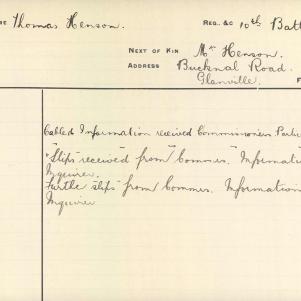 Thomas Henson. Reg. &c 10th Batt
Next of Kin Mr Henson.
Address Bucknal Road.
Glanville.
Cabled Information received Commissioners
"Slips received" from "Commrs." "Informati
Inquirer.
Further "slips" from Commrs. Information
Inquirer